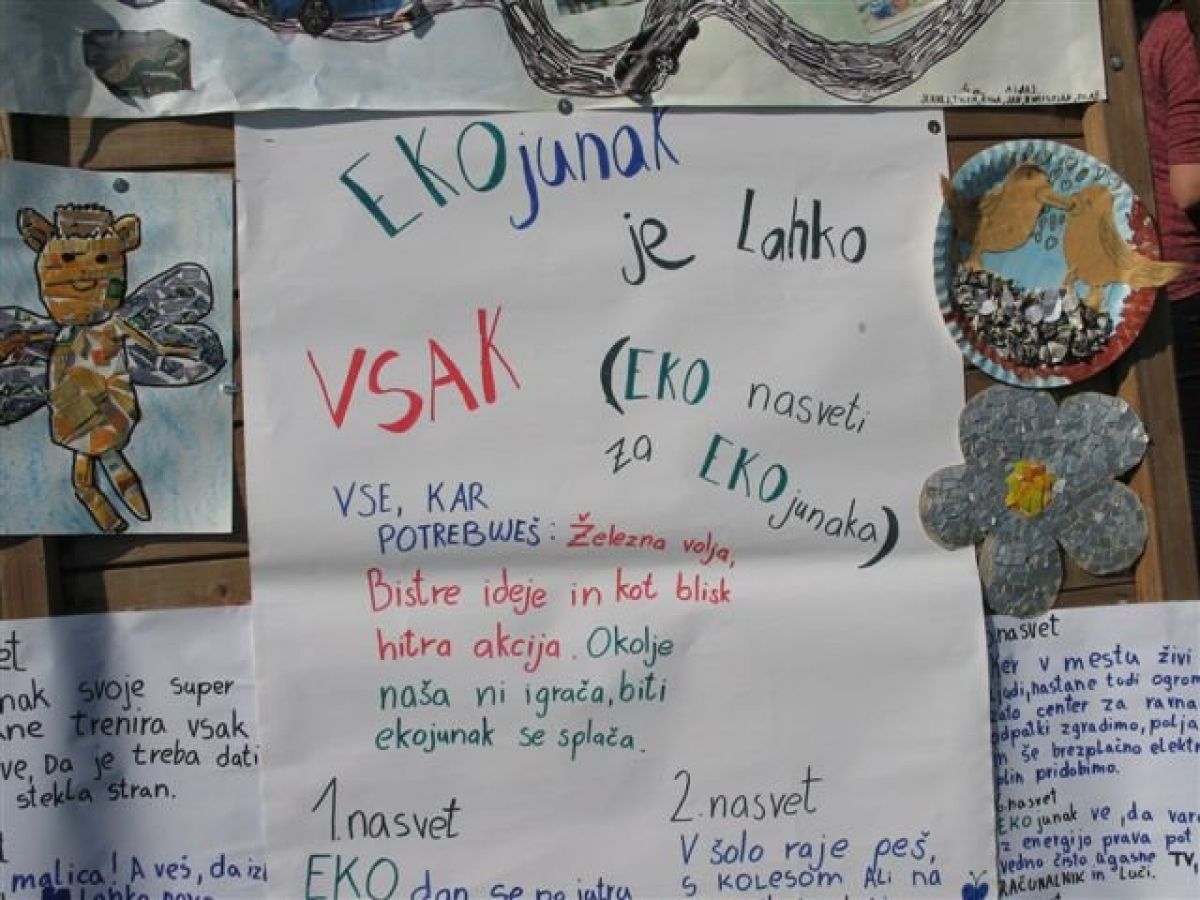 EKOjunak
je Lahko
VSAK
(EKO nasveti
za EKOjunaka)
VSE, KAR
POTREBUJEŠ: Železna volja,
Bistre ideje in kot blisk
hitra akcija. Okolje
naša ni igrača, biti
ekojunak se splača.
1. nasvet
EKO dan se po jutru
2. nasvet
V šolo raje peš,
s KOLESOM ALI na
nak svoje super
trenira vsak
ve, Da je treba dati
stekla stran.
malica! A veš, da
nasvet
v mestu živi
ljudi, nastane tudi
center za
odpatki zgradimo,
še brezplačno
pridobimo.
nasvet
EKOjunak ve, da
z energijo prava pot
vedno čisto ugasne TV,
RAČUNALNIK in Luči.